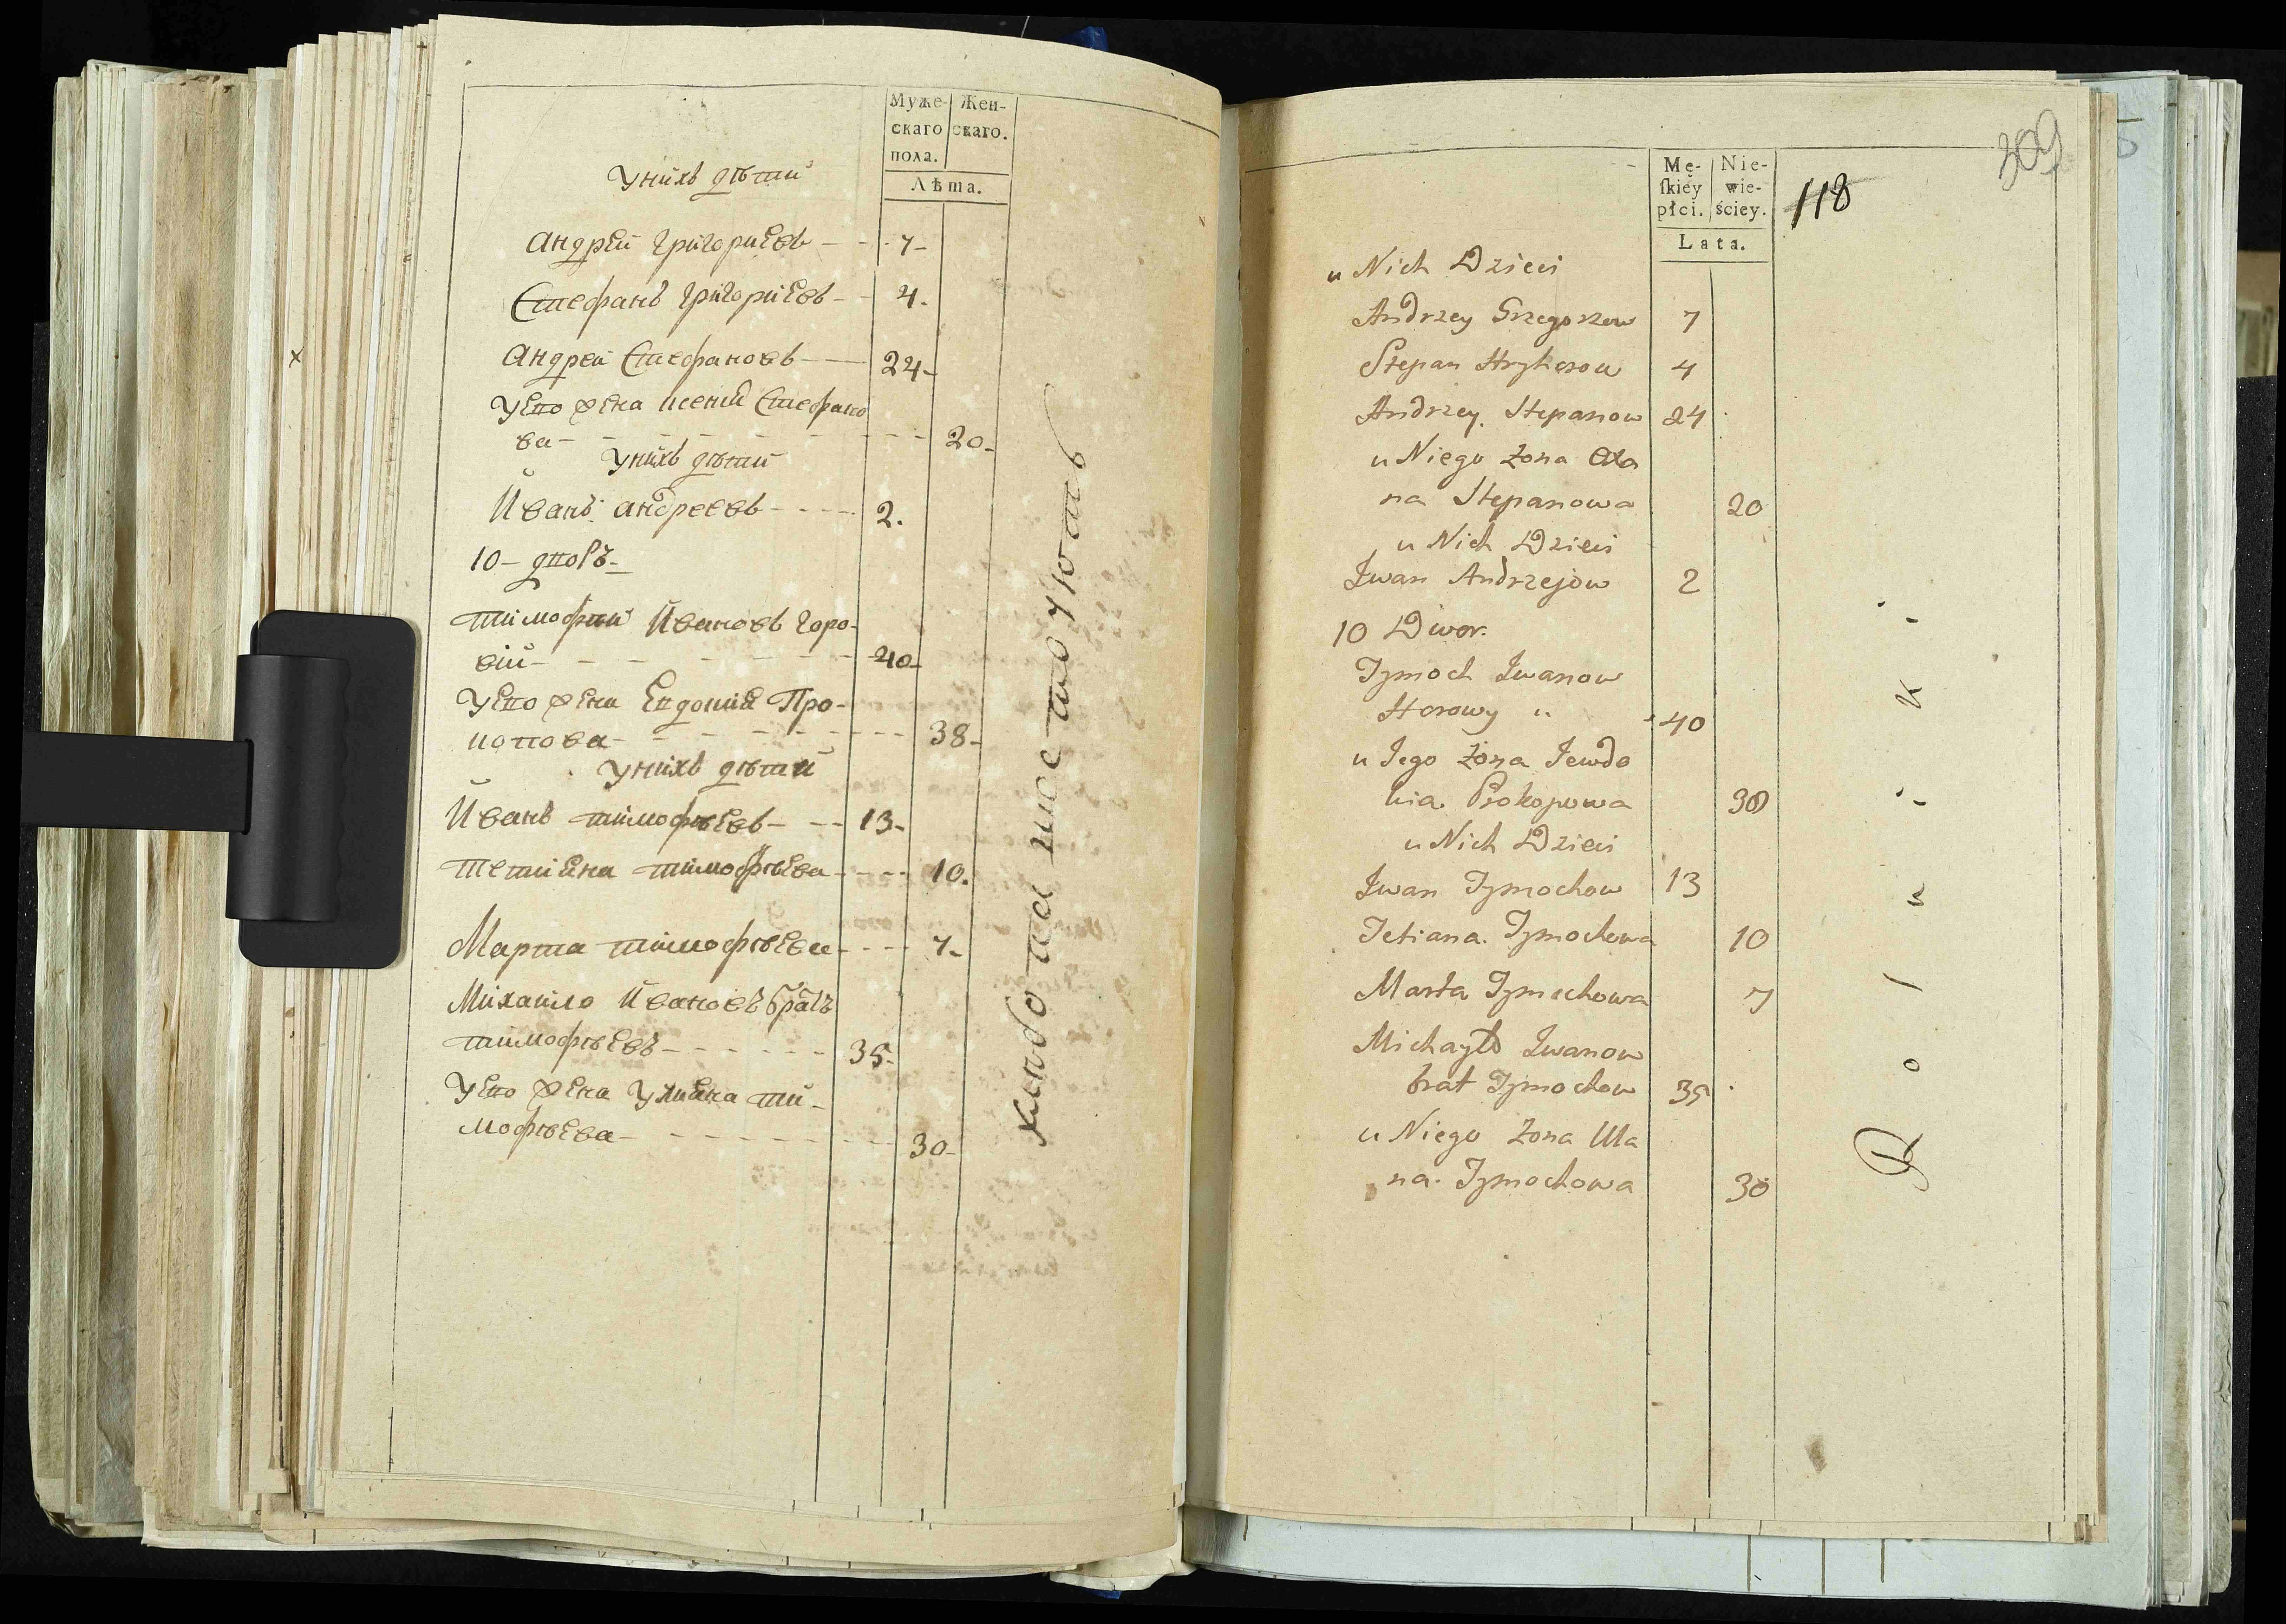 Муже- Жен-
скаго скаго.
пола.
Лѣта.
Унихъ дѣтий
Андрей Григориевъ - - 7-
Стефанъ Григориевъ - - 4.
Андрей Стефановъ - 24-
Унихъ дѣтий
ва - - - - - - - 20-
Иванъ Андреевъ - - - - 2.
10- дворъ-
Тимофей Ивановъ Горо-
вий - - - - - - 40-
Уево жена Евдокия Про-
копова - - - - - - - 38-
Унихъ дѣтий
Иванъ Тимофѣевъ - - - 13-
Тетияна Тимофѣева - - - - 10.
Марта Тимофѣева - - - - 7-
Михайло Ивановъ братъ
Тимофѣевъ - - - - - - 35-
Уево жена Улияна Ти-
мофѣева - - - - - - - 30-
309
118
Mę- Nie-
ſkiéy wie-
płci. ściey.
Lata.
u Nich Dzieci
Andrzey Grzegorzew 7
Stepan Hryherow 4
Andrzey Stepanow 24
u Niego żona
na Stepanowa 20
u Nich Dzieci
Iwan Andrzejow 2
10 Dwor.
Tymoch Iwanow
Horowy 40
u Jego żona Jewdo
kia Prokopowa 38
u Nich Dzieci
Iwan Tymochow 13
Tetiana Tymochowa 10
Marta Tymochowa 7
Michayło Iwanow
brat Tymochow 35
u Niego żona Ula
na Tymochowa 30